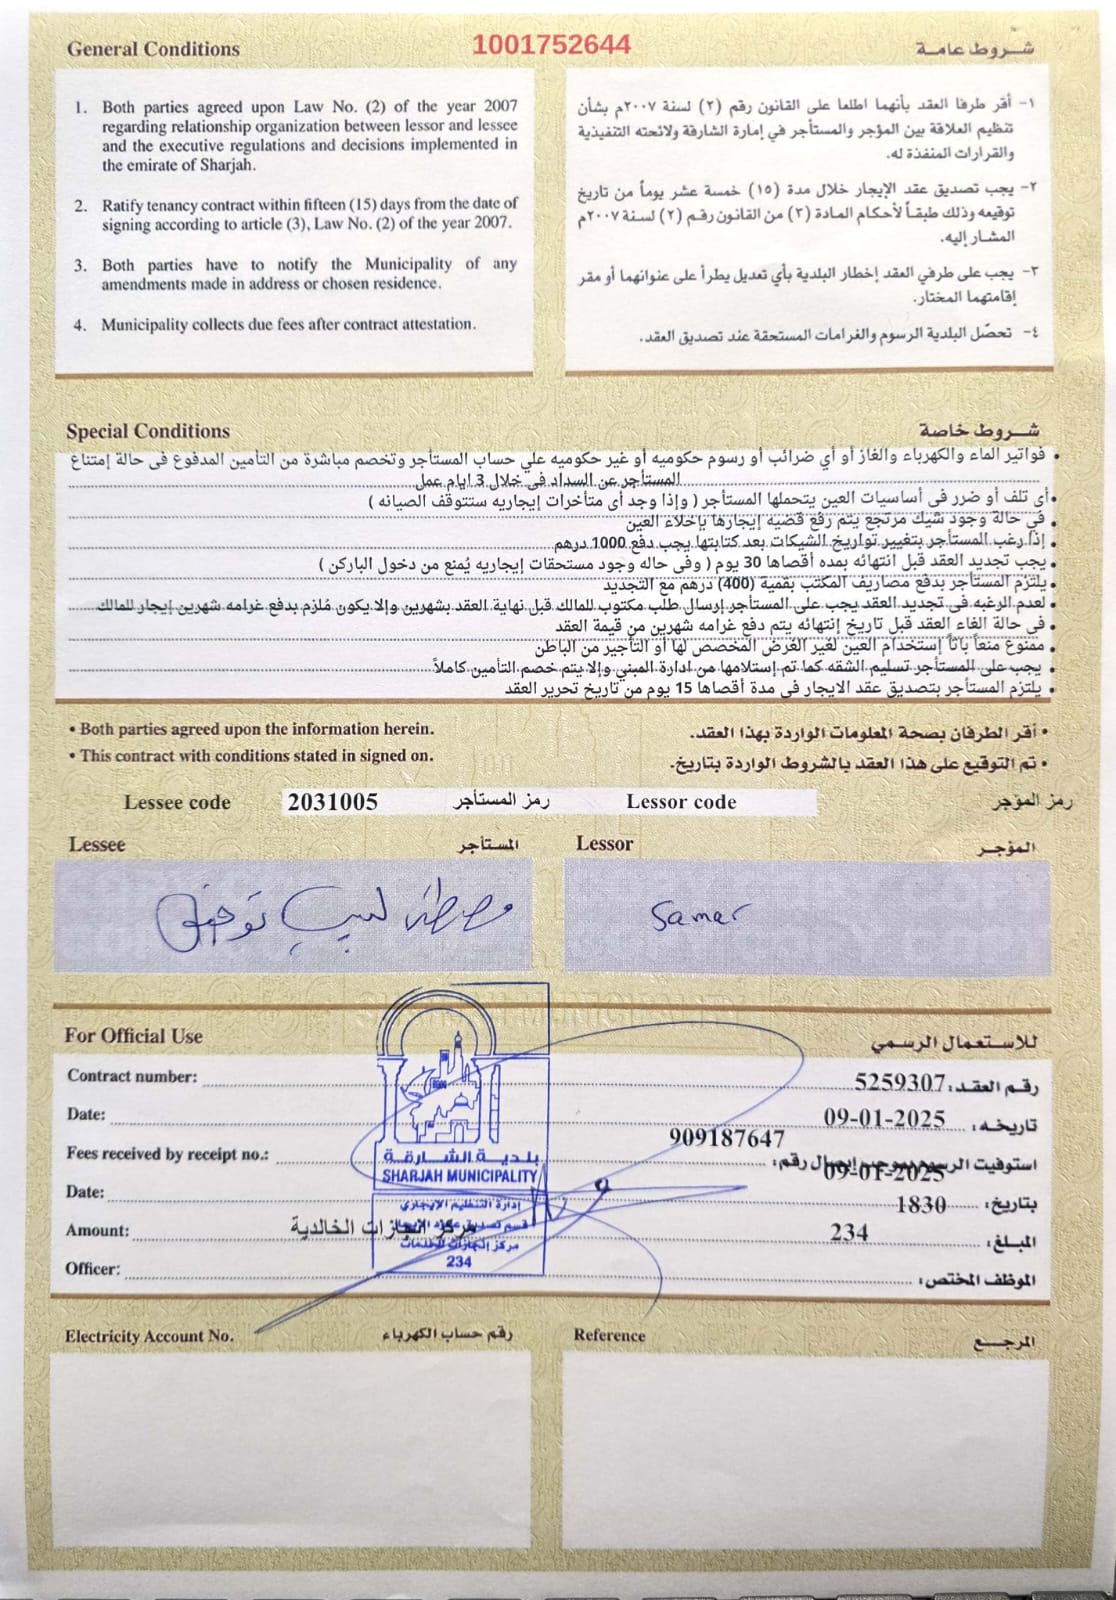 General Conditions
1001752644
شروط عامة
1. Both parties agreed upon Law No. (2) of the year 2007
regarding relationship organization between lessor and lessee
and the executive regulations and decisions implemented in
the emirate of Sharjah.
2. Ratify tenancy contract within fifteen (15) days from the date of
signing according to article (3), Law No. (2) of the year 2007.
3. Both parties have to notify the Municipality of any
amendments made in address or chosen residence.
4. Municipality collects due fees after contract attestation.
١- أقر طرفا العقد بأنهما اطلعا على القانون رقم (٢) لسنة ٢٠٠٧م بشأن
تنظيم العلاقة بين المؤجر والمستأجر في إمارة الشارقة ولائحته التنفيذية
والقرارات المنفذة له.
٢- يجب تصديق عقد الإيجار خلال مدة (١٥) خمسة عشر يوماً من تاريخ
توقيعه وذلك طبقاً لأحكام المادة (٣) من القانون رقم (٢) لسنة ٢٠٠٧م
المشار إليه.
٣- يجب على طرفي العقد إخطار البلدية بأي تعديل يطرأ على عنوانهما أو مقر
إقامتهما المختار.
٤- تحصّل البلدية الرسوم والغرامات المستحقة عند تصديق العقد.
Special Conditions
شروط خاصة
• فواتير الماء والكهرباء والغاز أو أي ضرائب أو رسوم حكوميه أو غير حكوميه علي حساب المستأجر وتخصم مباشرة من التأمين المدفوع فى حالة إمتناع
المستأجر عن السداد فى خلال 3 ايام عمل
• أى تلف أو ضرر فى أساسيات العين يتحملها المستأجر ( وإذا وجد أى متأخرات إيجاريه ستتوقف الصيانه )
• في حالة وجود شيك مرتجع يتم رفع قضيه إيجارها بإخلاء العين
• إذا رغب المستأجر بتغيير تواريخ الشيكات بعد كتابتها يجب دفع 1000 درهم
• يجب تجديد العقد قبل انتهائه بمده أقصاها 30 يوم ( وفى حاله وجود مستحقات إيجاريه يُمنع من دخول الباركن )
• يلتزم المستأجر بدفع مصاريف المكتب بقمية (400) درهم مع التجديد
• لعدم الرغبه فى تجديد العقد يجب على المستأجر إرسال طلب مكتوب للمالك قبل نهاية العقد بشهرين وإلا يكون مُلزم بدفع غرامه شهرين إيجار للمالك
• فى حالة الغاء العقد قبل تاريخ إنتهائه يتم دفع غرامه شهرين من قيمة العقد
• ممنوع منعاً باتاً إستخدام العين لغير الغرض المخصص لها أو التأجير من الباطن
• يجب على المستأجر تسليم الشقه كما تم إستلامها من ادارة المبني وإلا يتم خصم التأمين كاملاً
• يلتزم المستأجر بتصديق عقد الايجار فى مدة أقصاها 15 يوم من تاريخ تحرير العقد
• Both parties agreed upon the information herein.
• This contract with conditions stated in signed on.
• أقر الطرفان بصحة المعلومات الواردة بهذا العقد.
• تم التوقيع على هذا العقد بالشروط الواردة بتاريخ.
Lessee code 2031005 رمز المستأجر Lessor code رمز المؤجر
Lessee المستأجر Lessor المؤجر
مصطفى لبيب توفيق
Samer
For Official Use
للاستعمال الرسمي
Contract number: 5259307 رقم العقد:
Date: 09-01-2025 تاريخه:
909187647
Fees received by receipt no.: استوفيت الرسوم بموجب إيصال رقم:
09-01-2025
Date: 1830 بتاريخ:
Amount: مركز انجازات الخالدية 234 المبلغ:
Officer: الموظف المختص:
بلدية الشارقة
SHARJAH MUNICIPALITY
إدارة التنظيم الإيجاري
قسم تصديق عقود الإيجار
مركز إنجازات للخدمات
234
Electricity Account No. رقم حساب الكهرباء
Reference المرجع